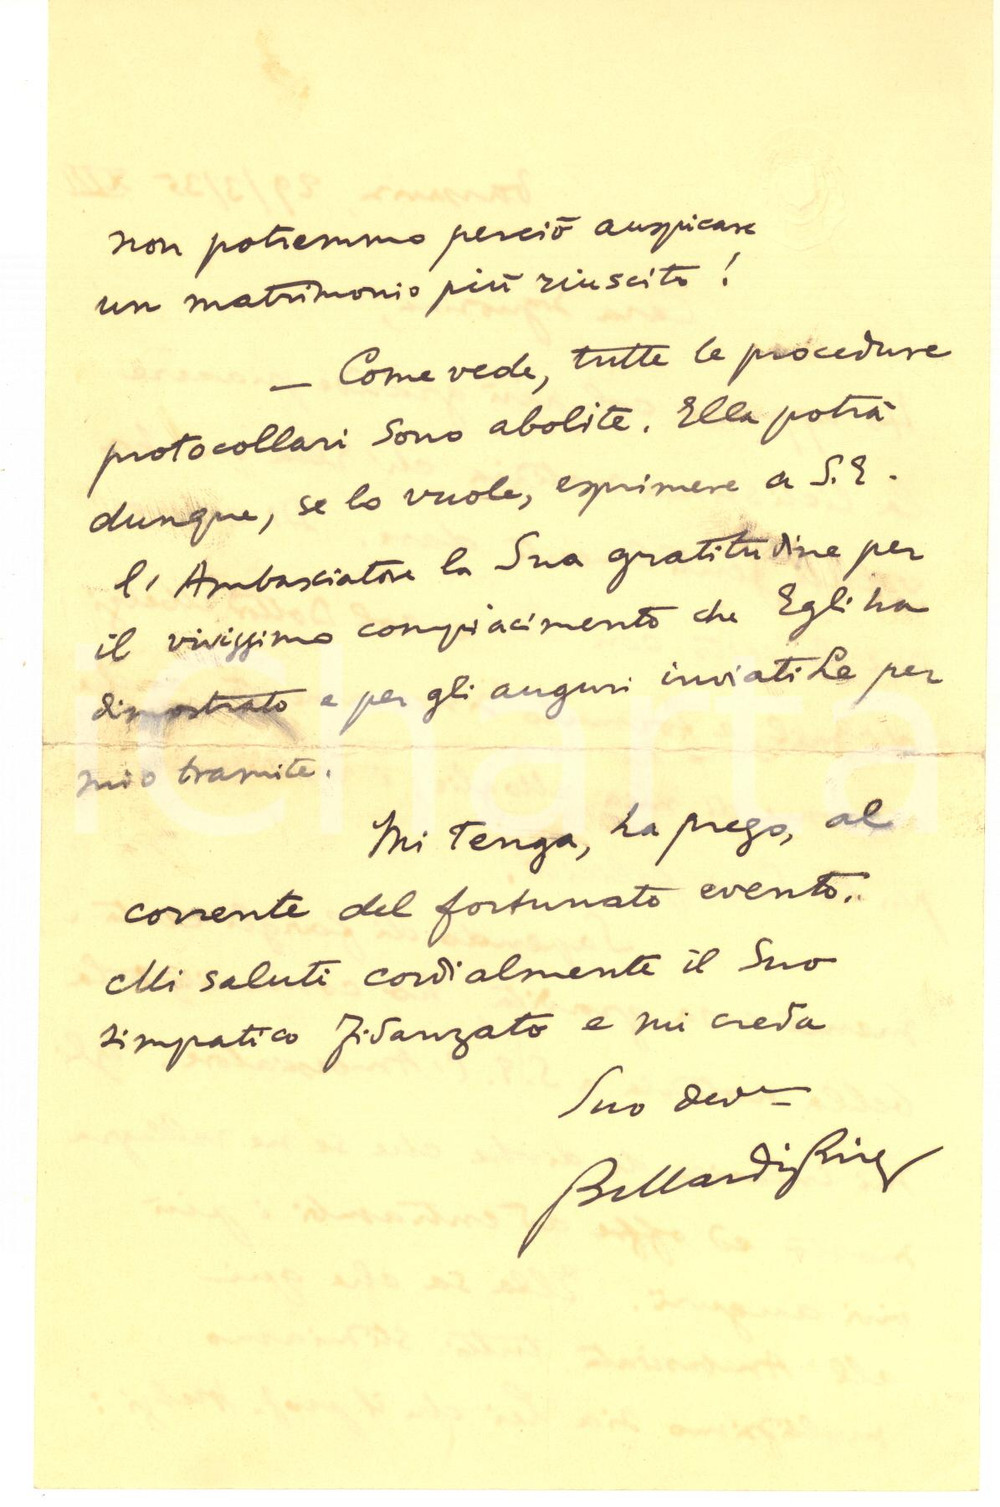 non potremmo perciò auspicare
un matrimonio più riuscito!
— Come vede, tutte le procedure
protocollari sono abolite. Ella potrà
dunque, se lo vuole, esprimere a S.E.
l'Ambasciatore la Sua gratitudine per
il vivissimo compiacimento che Egli ha
dimostrato e per gli auguri inviatiLe per
mio tramite.
Mi tenga, La prego, al
corrente del fortunato evento.
Mi saluti cordialmente il Suo
simpatico Fidanzato e mi creda
Suo dev.mo